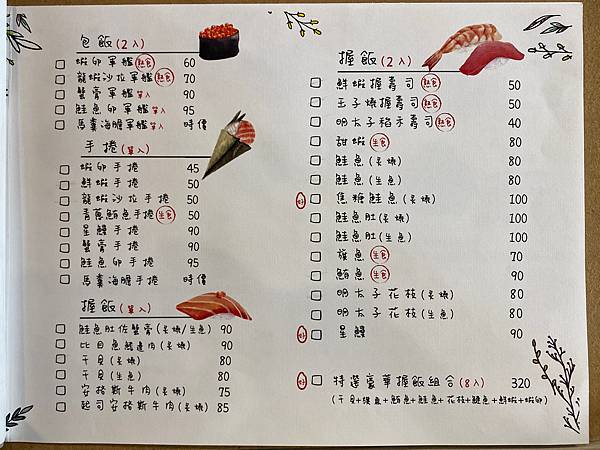 包飯(2入)
蝦卵軍艦 熟食 60
龍蝦沙拉軍艦 熟食 70
蟹膏軍艦 單入 90
鮭魚卵軍艦 單入 95
馬糞海膽軍艦 單入 時價
手捲(單入)
蝦卵手捲 45
鮮蝦手捲 50
龍蝦沙拉手捲 50
青蔥鮪魚手捲 生食 50
星鰻手捲 90
蟹膏手捲 90
鮭魚卵手捲 95
馬糞海膽手捲 時價
握飯(單入)
鮭魚肚佐蟹膏(炙燒/生魚) 90
比目魚鰭邊肉(炙燒) 90
干貝(炙燒) 80
干貝(生魚) 80
安格斯牛肉(炙燒) 75
起司安格斯牛肉(炙燒) 85
握飯(2入)
鮮蝦握壽司 熟食 50
玉子燒握壽司 熟食 50
明太子稻禾壽司 熟食 40
甜蝦 生食 80
鮭魚(炙燒) 80
鮭魚(生魚) 80
焦糖鮭魚(炙燒) 100
鮭魚肚(炙燒) 100
鮭魚肚(生魚) 100
旗魚 生食 70
鮪魚 生食 90
明太子花枝(炙燒) 80
明太子花枝(生魚) 80
星鰻 90
特選豪華握飯組合(8入) 320
(干貝+旗魚+鮪魚+鮭魚+花枝+鰱魚+鮮蝦+蝦卵)